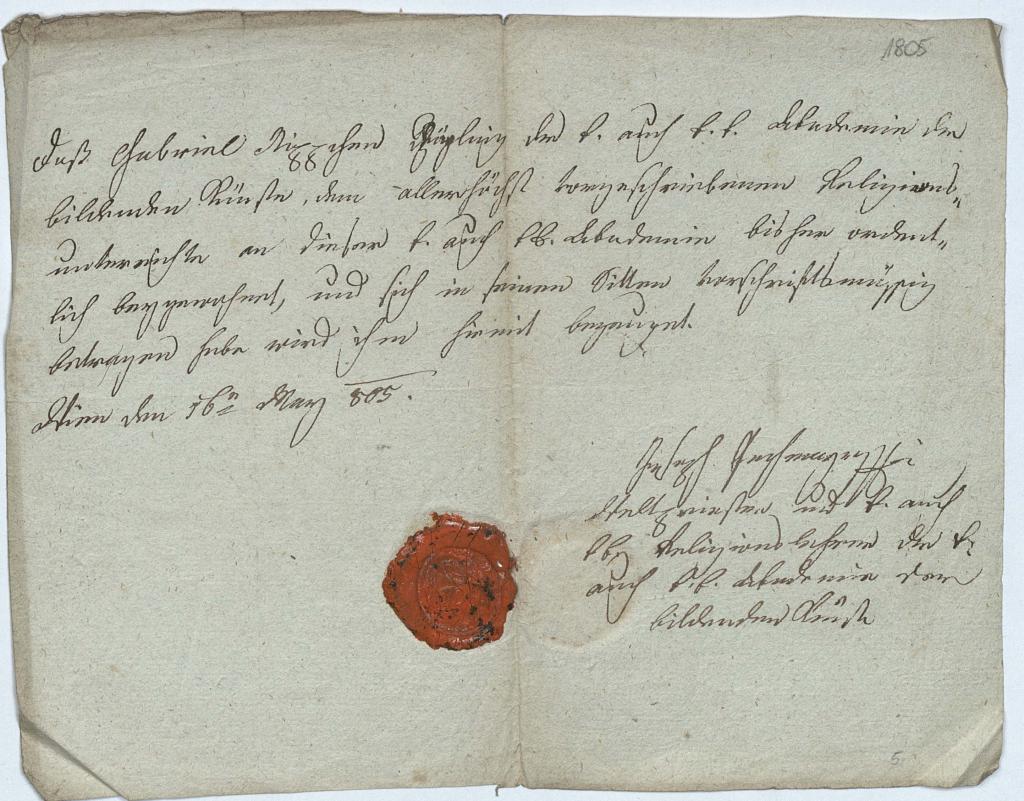 1805
Daß Gabriel Zögling der k. auch k.k. Akademie der
bildenden Künste, dem allerhöchst vorgeschriebenen Religions-
unterrichte an dieser k. auch kk. Akademie bisher ordent-
lich beygewohnet, und sich in seinen Sitten vorschriftsmässig
betragen habe wird ihm hiemit bezeuget.
Wien den 16n May 805.
Joseph
Weltpriester und k. auch
kk. Religionslehrer der k.
auch k.k. Akademie der
bildenden Künste
5.